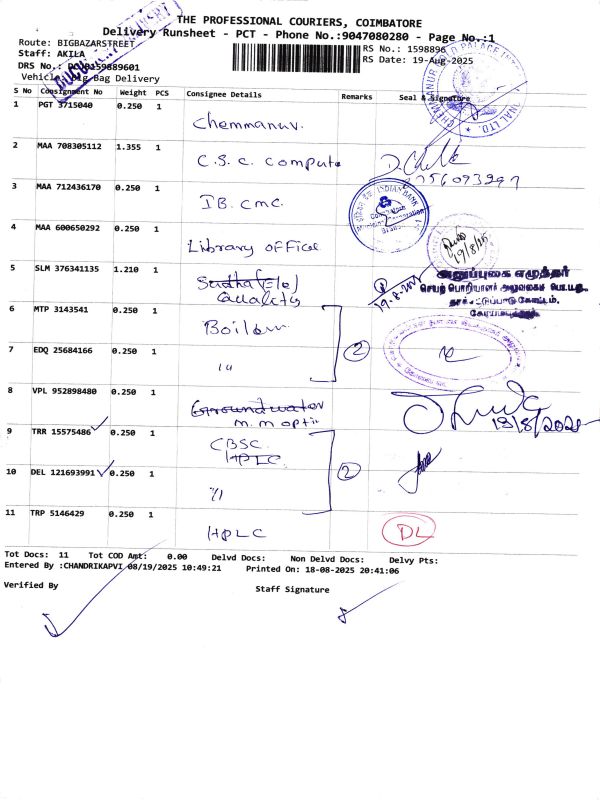 THE PROFESSIONAL COURIERS, COIMBATORE
Delivery Runsheet - PCT - Phone No.:9047080280 - Page No.:1
Route: BIGBAZARSTREET
RS No.: 1598896
Staff: AKILA
RS Date: 19-Aug-2025
DRS No.:
Bag Delivery
S No Consignment No Weight PCS Consignee Details Remarks Seal & Signature
1 PGT 3715040 0.250 1 Chemmanur.
2 MAA 708305112 1.355 1 C.S.C. Compute
3 MAA 712436170 0.250 1 IB. CMC.
INDIAN BANK
4 MAA 600650292 0.250 1 Library Office
19/8/25
5 SLM 376341135 1.210 1
19-8-2025
அனுப்புகை எழுத்தர்
செயற் பொறியாளர் அலுவலகம்
6 MTP 3143541 0.250 1 Boiler
7 EDQ 25684166 0.250 1 "
2
8 VPL 952898480 0.250 1 Groundwater
m.m opti
9 TRR 15575486 0.250 1 CBSC.
HPLC.
10 DEL 121693991 0.250 1 "
2
11 TRP 5146429 0.250 1 HPLC
DL
Tot Docs: 11 Tot COD Amt: 0.00 Delvd Docs: Non Delvd Docs: Delvy Pts:
Entered By :CHANDRIKAPVI 08/19/2025 10:49:21 Printed On: 18-08-2025 20:41:06
Verified By
Staff Signature